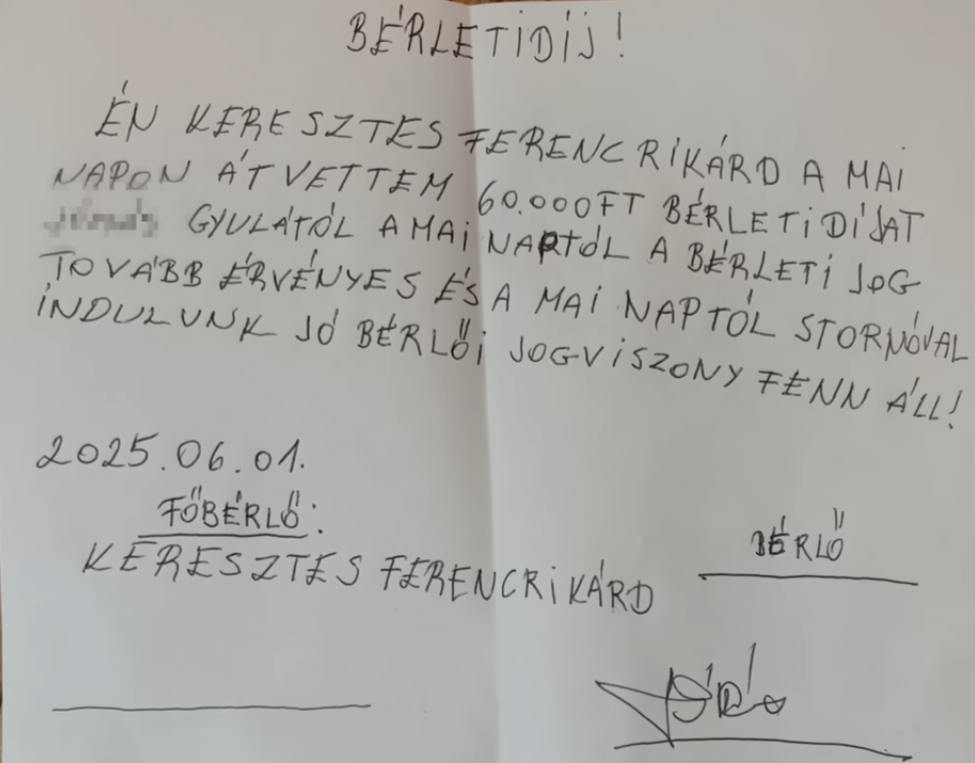 BÉRLETIDÍJ!
ÉN KERESZTES FERENCRIKÁRD A MAI
NAPON ÁTVETTEM 60.000FT BÉRLETIDÍJAT
GYULÁTÓL A MAI NAPTÓL A BÉRLETI JOG
TOVÁBB ÉRVÉNYES ÉS A MAI NAPTÓL STORNÓVAL
INDULUNK JÓ BÉRLŐI JOGVISZONY FENN ÁLL!
2025.06.01.
FŐBÉRLŐ:
BÉRLŐ
KERESZTES FERENCRIKÁRD